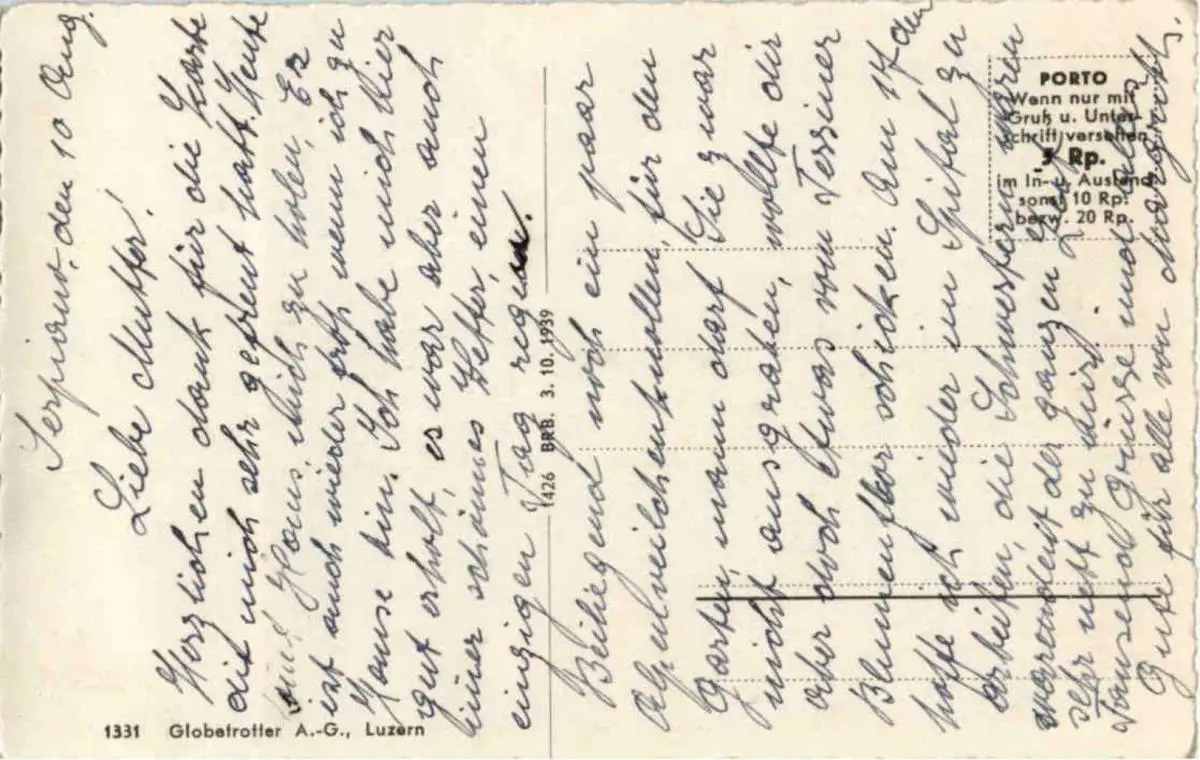 Serpiano, den 10 Aug.
Liebe Mutter!
Herzlichen dank für die Karte
die mich sehr gefreut hatt. Heute
Hans mich zu holen, Er
ist auch wieder froh wenn ich zu
Hause bin. Ich habe mich hier
gut erholt, es war aber auch
immer schönes Wetter, einen
einzigen Tag regen.
Beiliegend noch ein paar
Alpenveilchen für den
Garten, man darf Sie zwar
nicht ausgraben, wollte dir
aber doch etwas vom Tessiner
Blumenflor schicken. Am 17 den
hoffe ich wieder im Spital zu
arbeiten, die Schwestern waren
während der ganzen Zeit
sehr nett zu mir.
Tausend Grüsse und alles
Gute für alle von Margrith.
1331 Globetrotter A.-G., Luzern
1426 BRB. 3. 10. 1939
PORTO
Wenn nur mit
Gruß u. Unter-
schrift versehen
5 Rp.
im In- u. Ausland
sonst 10 Rp.
bezw. 20 Rp.